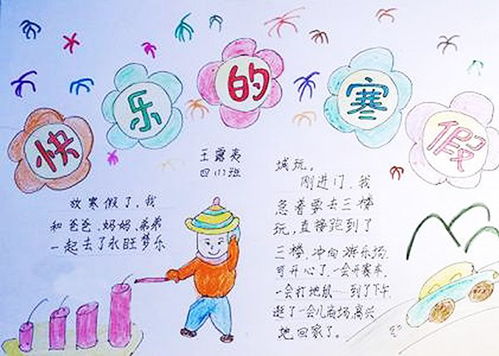 快乐的寒假
王露
四(1)班
放寒假了,我
和爸爸、妈妈、弟弟
一起去了永旺梦乐
城玩。
刚进门,我
急着要去三楼
玩,直接跑到了
三楼,冲向游乐场,
可开心了,一会开赛车,
一会打地鼠——到了下午,
逛了一会儿商场,高兴
地回家了。